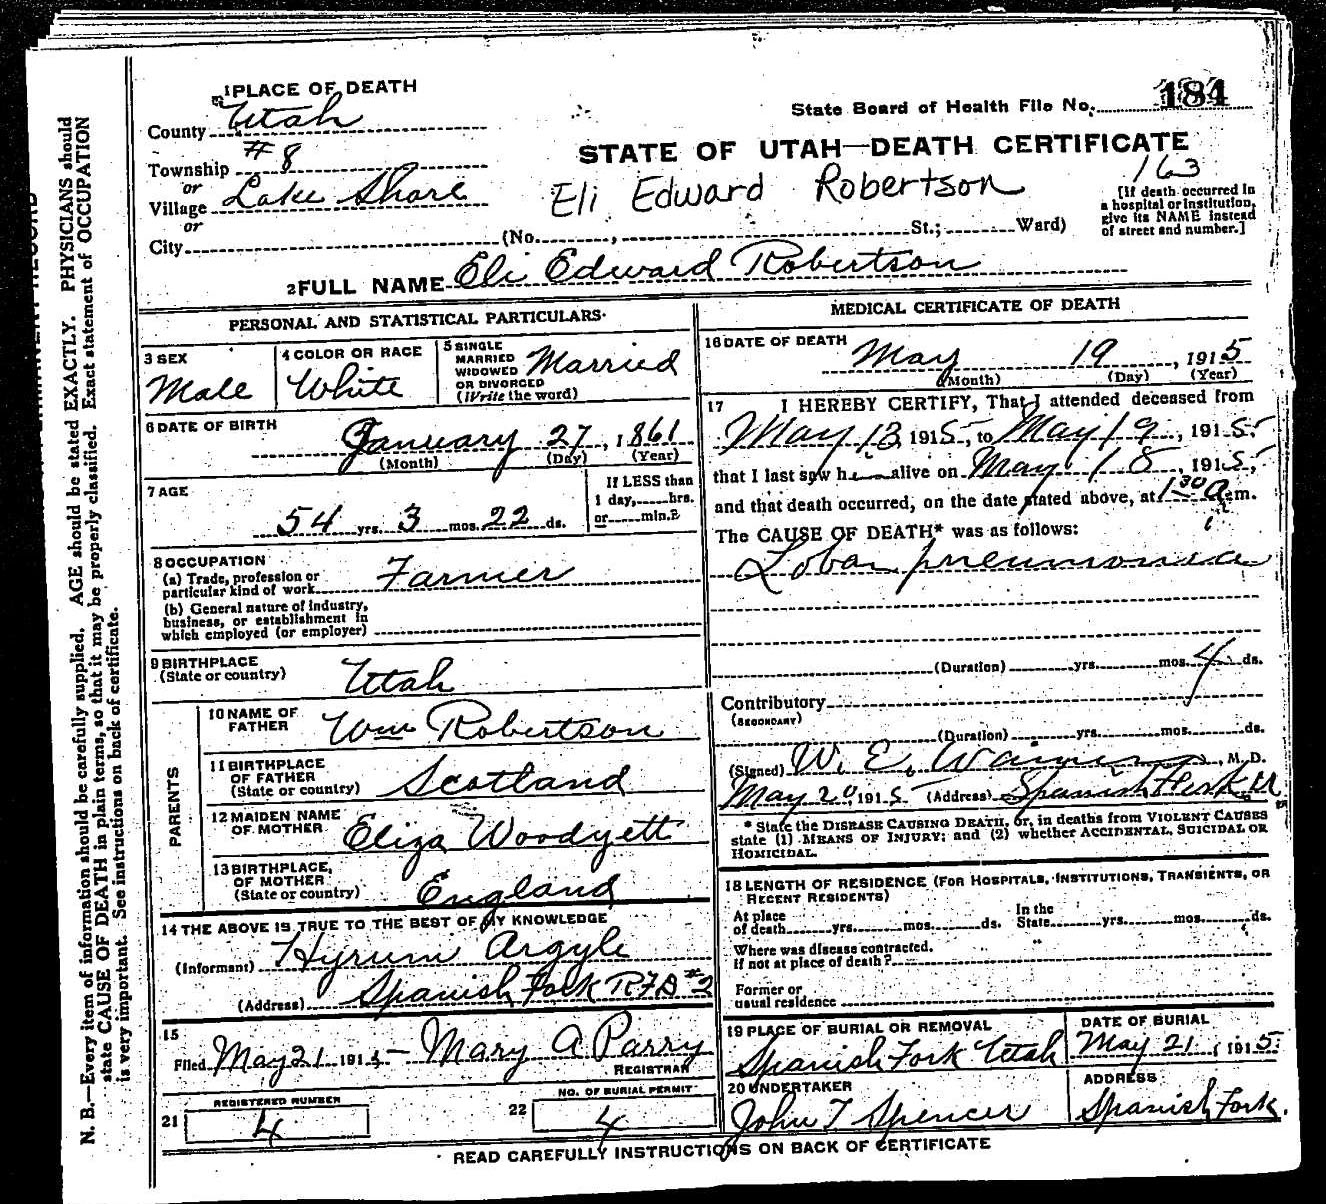 1 PLACE OF DEATH
County Utah
Township #8
or
Village Lake Shore
or
City (No. , St.; Ward)
State Board of Health File No. 184
STATE OF UTAH—DEATH CERTIFICATE
163
Eli Edward Robertson
[If death occurred in
a hospital or institution,
give its NAME instead
of street and number.]
2 FULL NAME Eli Edward Robertson
PERSONAL AND STATISTICAL PARTICULARS
3 SEX
Male
4 COLOR OR RACE
White
5 SINGLE
MARRIED
WIDOWED
OR DIVORCED
(Write the word)
Married
6 DATE OF BIRTH
January 27, 1861
(Month) (Day) (Year)
7 AGE
54 yrs. 3 mos. 22 ds.
If LESS than
1 day, hrs.
or min.?
8 OCCUPATION
(a) Trade, profession or
particular kind of work Farmer
(b) General nature of industry,
business, or establishment in
which employed (or employer)
9 BIRTHPLACE
(State or country) Utah
PARENTS
10 NAME OF
FATHER Wm Robertson
11 BIRTHPLACE
OF FATHER
(State or country) Scotland
12 MAIDEN NAME
OF MOTHER Eliza Woodyett
13 BIRTHPLACE,
OF MOTHER
(State or country) England
14 THE ABOVE IS TRUE TO THE BEST OF MY KNOWLEDGE
(Informant) Hyrum Argyle
(Address) Spanish Fork RFD #2
15
Filed May 21 1915 Mary A Parry
REGISTRAR
21
REGISTERED NUMBER
4
22
NO. OF BURIAL PERMIT
4
MEDICAL CERTIFICATE OF DEATH
16 DATE OF DEATH
May 19, 1915
(Month) (Day) (Year)
17 I HEREBY CERTIFY, That I attended deceased from
May 13 1915, to May 19, 1915,
that I last saw h alive on May 18, 1915,
and that death occurred, on the date stated above, at 1 30 a.m.
The CAUSE OF DEATH* was as follows:
Lobar pneumonia
(Duration) yrs. mos. 4 ds.
Contributory
(SECONDARY)
(Duration) yrs. mos. ds.
(Signed) W. E. , M. D.
May 20, 1915 (Address) Spanish Fork U
* State the DISEASE CAUSING DEATH, or, in deaths from VIOLENT CAUSES
state (1) MEANS OF INJURY; and (2) whether ACCIDENTAL, SUICIDAL OR
HOMICIDAL.
18 LENGTH OF RESIDENCE (FOR HOSPITALS, INSTITUTIONS, TRANSIENTS, OR
RECENT RESIDENTS)
At place
of death yrs. mos. ds.
In the
State yrs. mos. ds.
Where was disease contracted.
If not at place of death?
Former or
usual residence
19 PLACE OF BURIAL OR REMOVAL
Spanish Fork Utah
DATE OF BURIAL
May 21, 1915
20 UNDERTAKER
John T Spencer
ADDRESS
Spanish Fork.
READ CAREFULLY INSTRUCTIONS ON BACK OF CERTIFICATE
N. B.—Every item of information should be carefully supplied. AGE should be stated EXACTLY. PHYSICIANS should
state CAUSE OF DEATH in plain terms, so that it may be properly classified. Exact statement of OCCUPATION
is very important. See instructions on back of certificate.